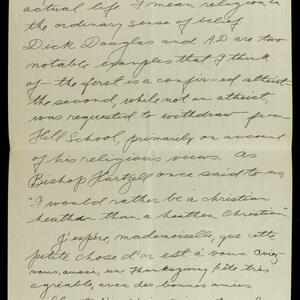 actual life. I mean religion in
the ordinary sense of belief.
Dick Douglas and A.D are two
notable examples that I think
of - the first is a confirmed atheist
the second, while not an atheist,
was requested to withdraw from
Hill School, primarily on account
of his religious views. As
Bishop Hartzell once said to us,
"I would rather be a christian
heathen than a heathen christian"
J'espère, mademoiselle, que cette
petite chose d'or est à vous. Ayez-
vous, aussi, un Thanksgiving fête très
agréable, avec des bonnes amies